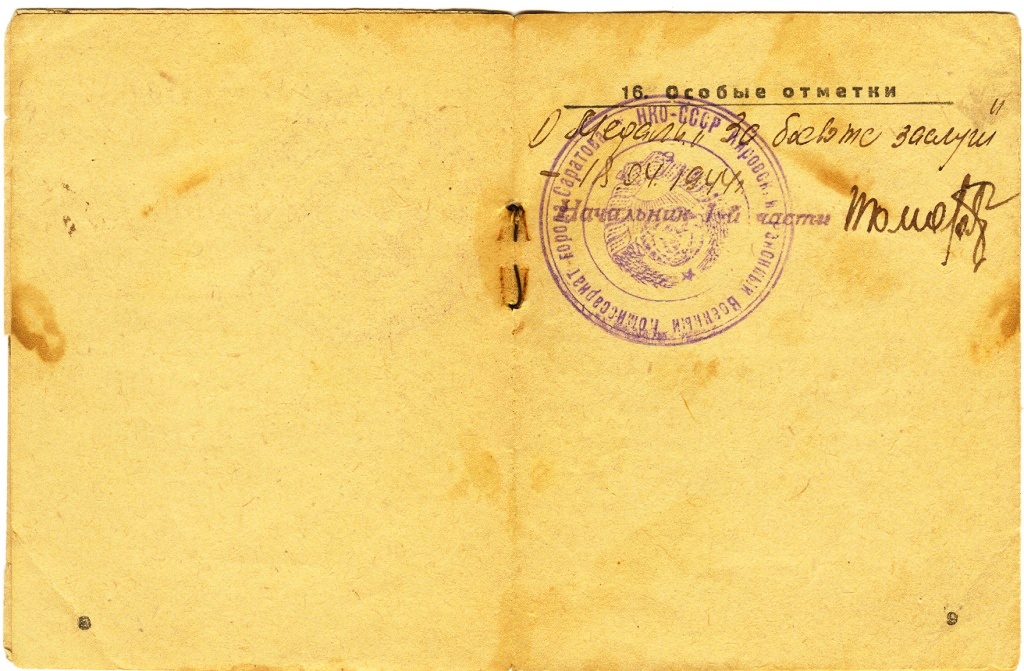 16. Особые отметки
1) Медаль „За боевые заслуги"
- 18.04.1944г.
Начальник 1-й части
НКО-СССР Кировский Районный Военный Комиссариат города Саратова
8
9